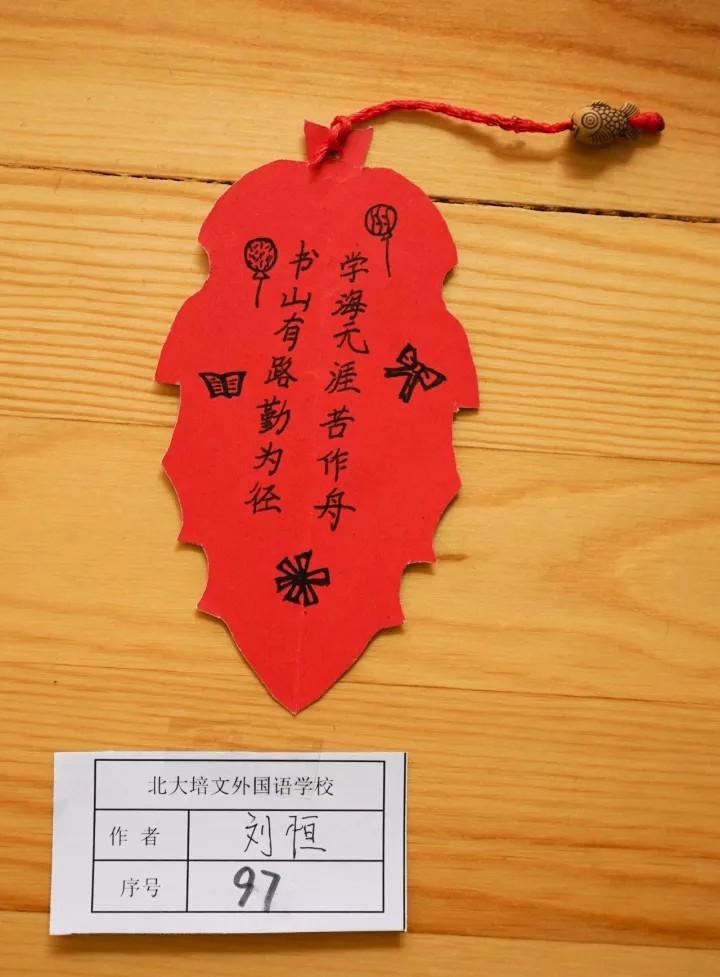 书山有路勤为径
学海无涯苦作舟
北大培文外国语学校
作者 刘恒
序号 97